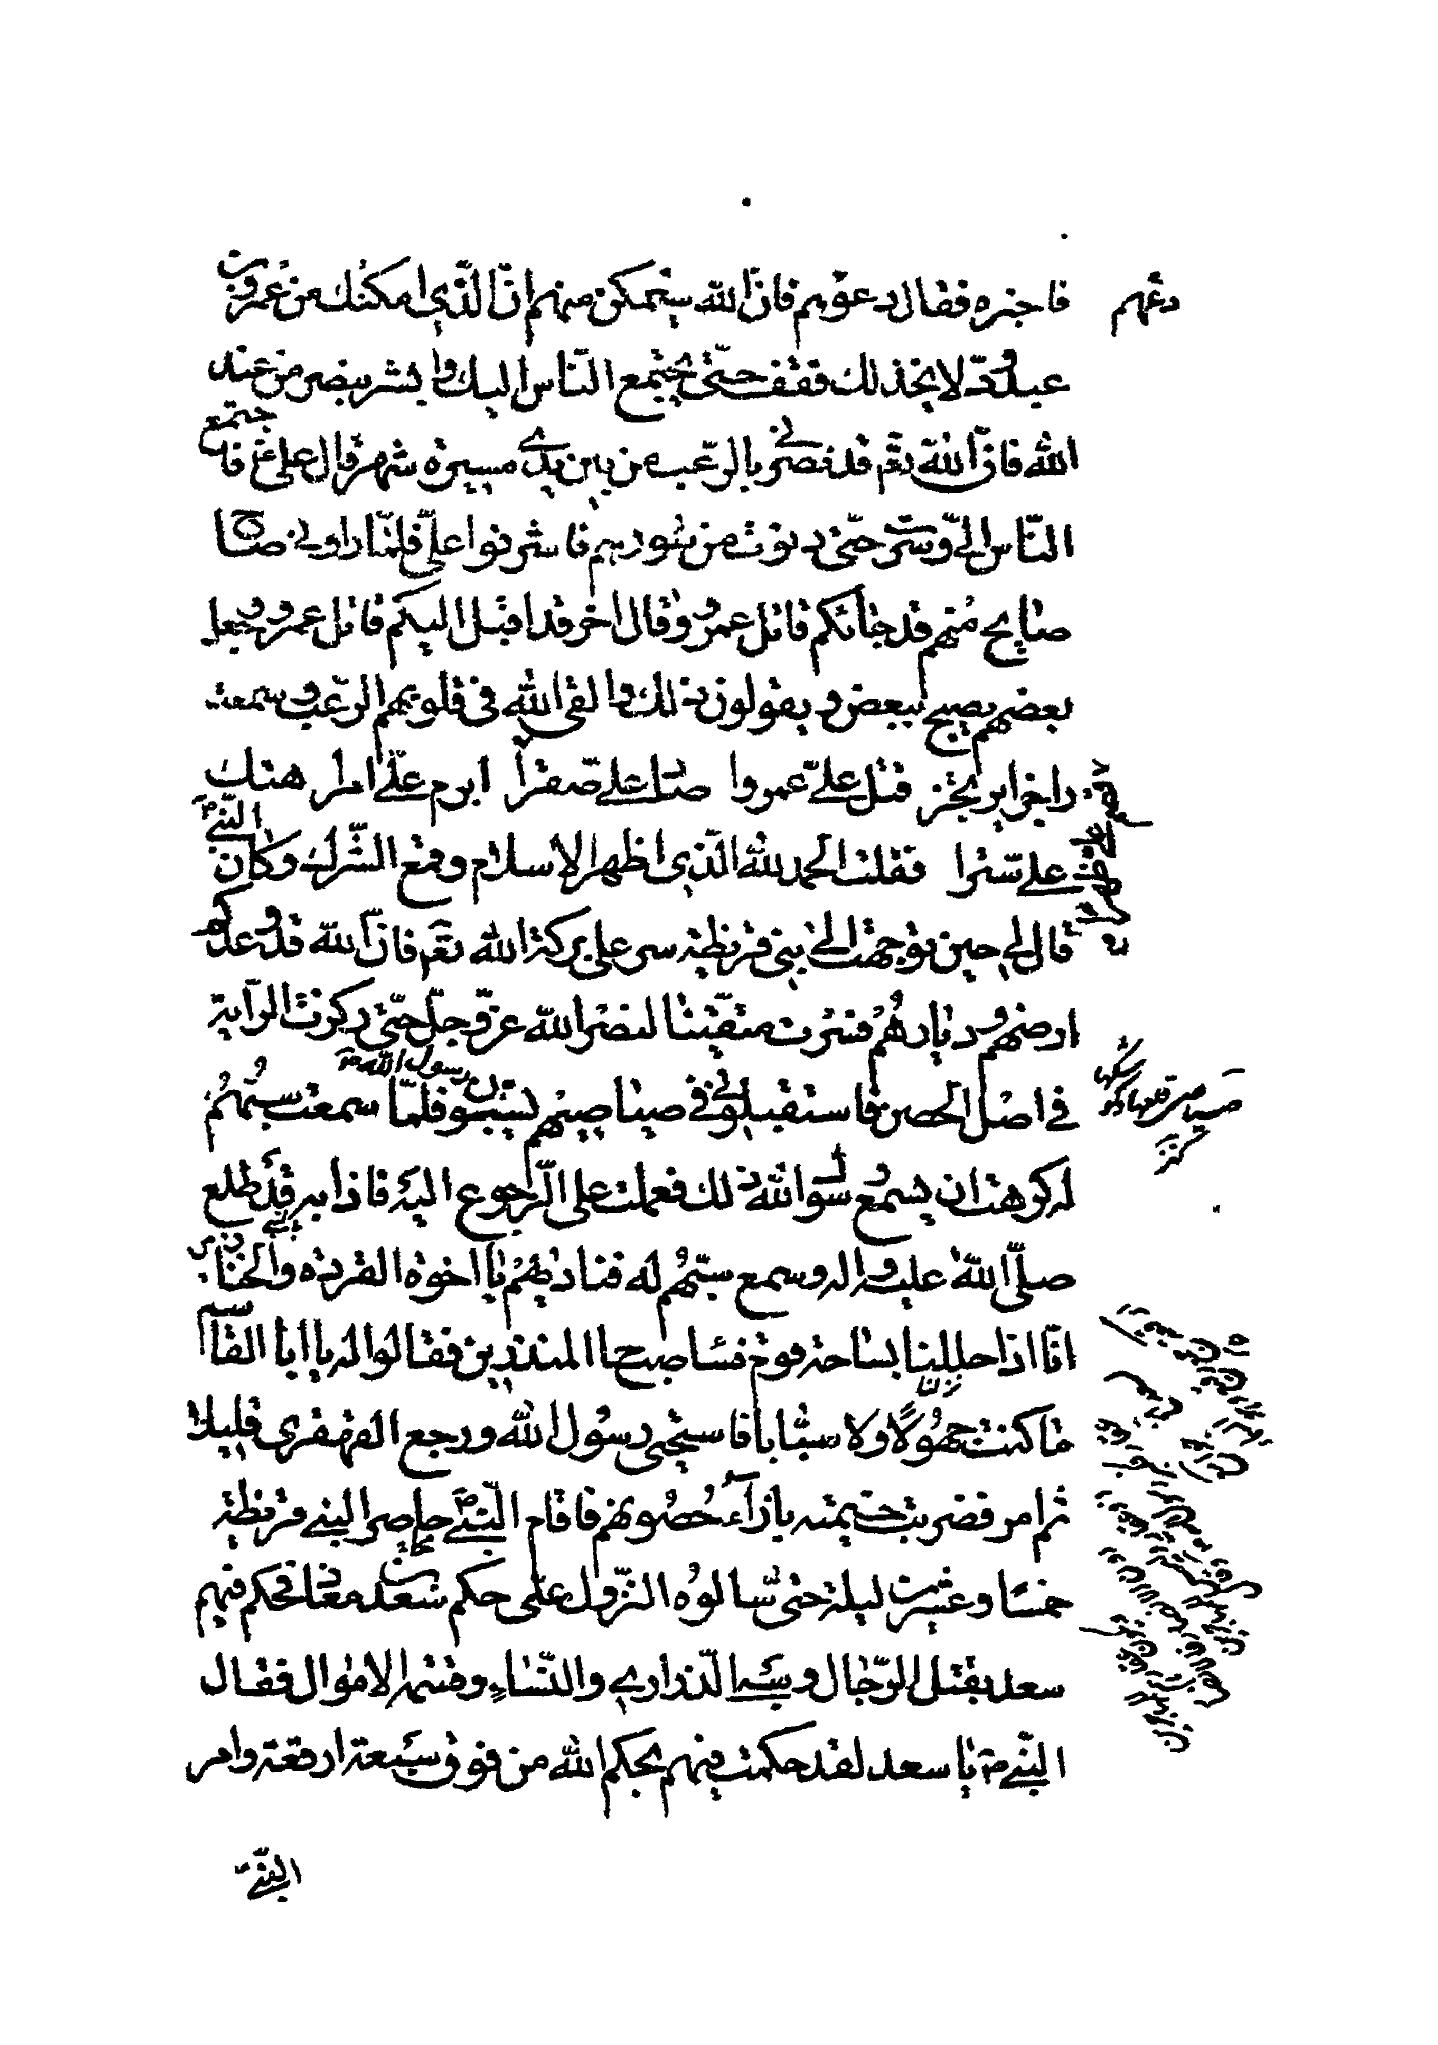 فاخبره فقال دعوهم فان الله سيمكن منهم انّ الّذي امكنك من عمرو بن
دعهم
عبد ودّ لا يخذلك فقف حتّى يجتمع النّاس اليك وابشر بنصر من عند
الله فانّ الله تعم قد نصرني بالرّعب من بين يدي مسيرة شهر قال علي ع فاجتمع
النّاس اليّ وسرت حتّى دنوت من سورهم فاشرفوا علىّ فلمّا راوني صاح
صايح منهم قد جائكم قاتل عمرو وقال اخر قد اقبل اليكم قاتل عمرو وجعل
بعضهم يصيح ببعض ويقولون ذلك والقى الله في قلوبهم الرّعب وسمعت
راجزا يرتجز قتل علىّ عمروا صاد علي صقرا ابرم علىّ امرا هتك
علي سترا فقلت الحمد لله الّذي اظهر الاسلام وقمع الشّرك وكان النّبي ص
قال لي حين توجهت الى بني قريظة سر على بركة الله تعم فانّ الله قد وعدكم
ارضهم وديارهم فسرت متيقّنا لنصر الله عزّ وجلّ حتّى ركزت الراية
في اصل الحصن فاستقبلوني في صياصيهم يسبّون رسول الله ص فلمّا سمعت سبّهم
له كرهت ان يسمع رسول الله ذلك فعملت على الرّجوع اليه فاذا به قد طلع
صلّى الله عليه واله وسمع سبّهم له فناديهم يا اخوة القردة والخنازير
انّا اذا حللنا بساحة قوم فساء صباح المنذرين فقالوا له يا ابا القاسم
ما كنت جهولا ولا سبّابا فاستحيى رسول الله ورجع القهقرى قليلا
ثم امر فضربت خيمته بازآء حصونهم فاقام النّبي ص حاصر البني قريظة
خمسا وعشرين ليلة حتى سالوه النّزول على حكم سعد بن معاذ فحكم فيهم
سعد بقتل الرّجال وسبي الذراري والنّساء وقسمة الاموال فقال
النّبي ص يا سعد لقد حكمت فيهم بحكم الله من فوق سبعة ارقعة وامر
النّبي ص